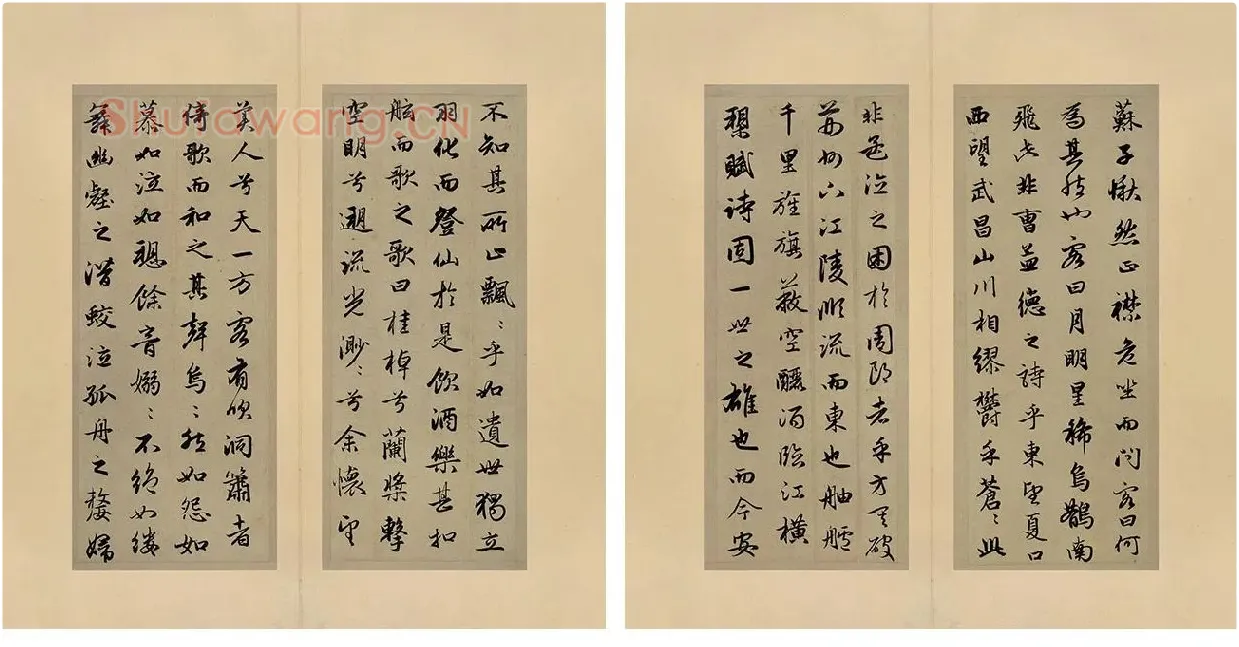 Shufawang.CN
不知其所止飄〻乎如遺世獨立
羽化而登仙於是飲酒樂甚扣
舷而歌之歌曰桂棹兮蘭槳擊
空明兮遡流光渺〻兮余懷望
美人兮天一方客有吹洞簫者
倚歌而和之其聲烏〻然如怨如
慕如泣如愬餘音嫋〻不絕如縷
舞幽壑之潛蛟泣孤舟之嫠婦
蘇子愀然正襟危坐而問客曰何
為其然也客曰月明星稀烏鵲南
飛此非曹孟德之詩乎東望夏口
西望武昌山川相繆鬱乎蒼〻此
非孟德之困於周郎者乎方其破
荊州下江陵順流而東也舳艫
千里旌旗蔽空釃酒臨江橫
槊賦詩固一世之雄也而今安